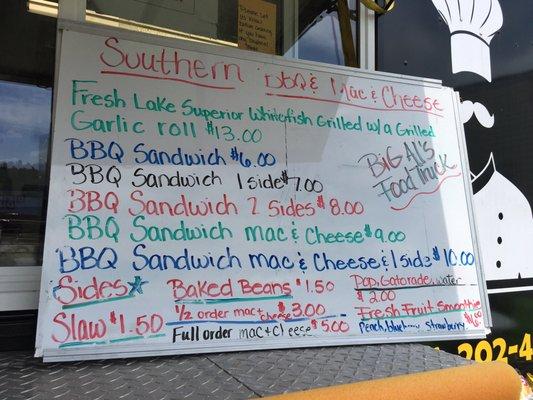 Southern BBQ & Mac & Cheese
Fresh Lake Superior Whitefish Grilled w/a Grilled
Garlic roll $13.00
BBQ Sandwich $6.00
BBQ Sandwich 1 side $7.00
BBQ Sandwich 2 Sides $8.00
BBQ Sandwich Mac & Cheese $9.00
BBQ Sandwich mac & Cheese & 1 side $10.00
BiG Al's
Food Truck
Sides
Slaw $1.50
Baked Beans $1.50
1/2 order mac & Cheese $3.00
Full order mac & Cheese $5.00
Pop, Gatorade, water
$2.00
Fresh Fruit Smoothie
Peach, blueberry strawberry
202-4